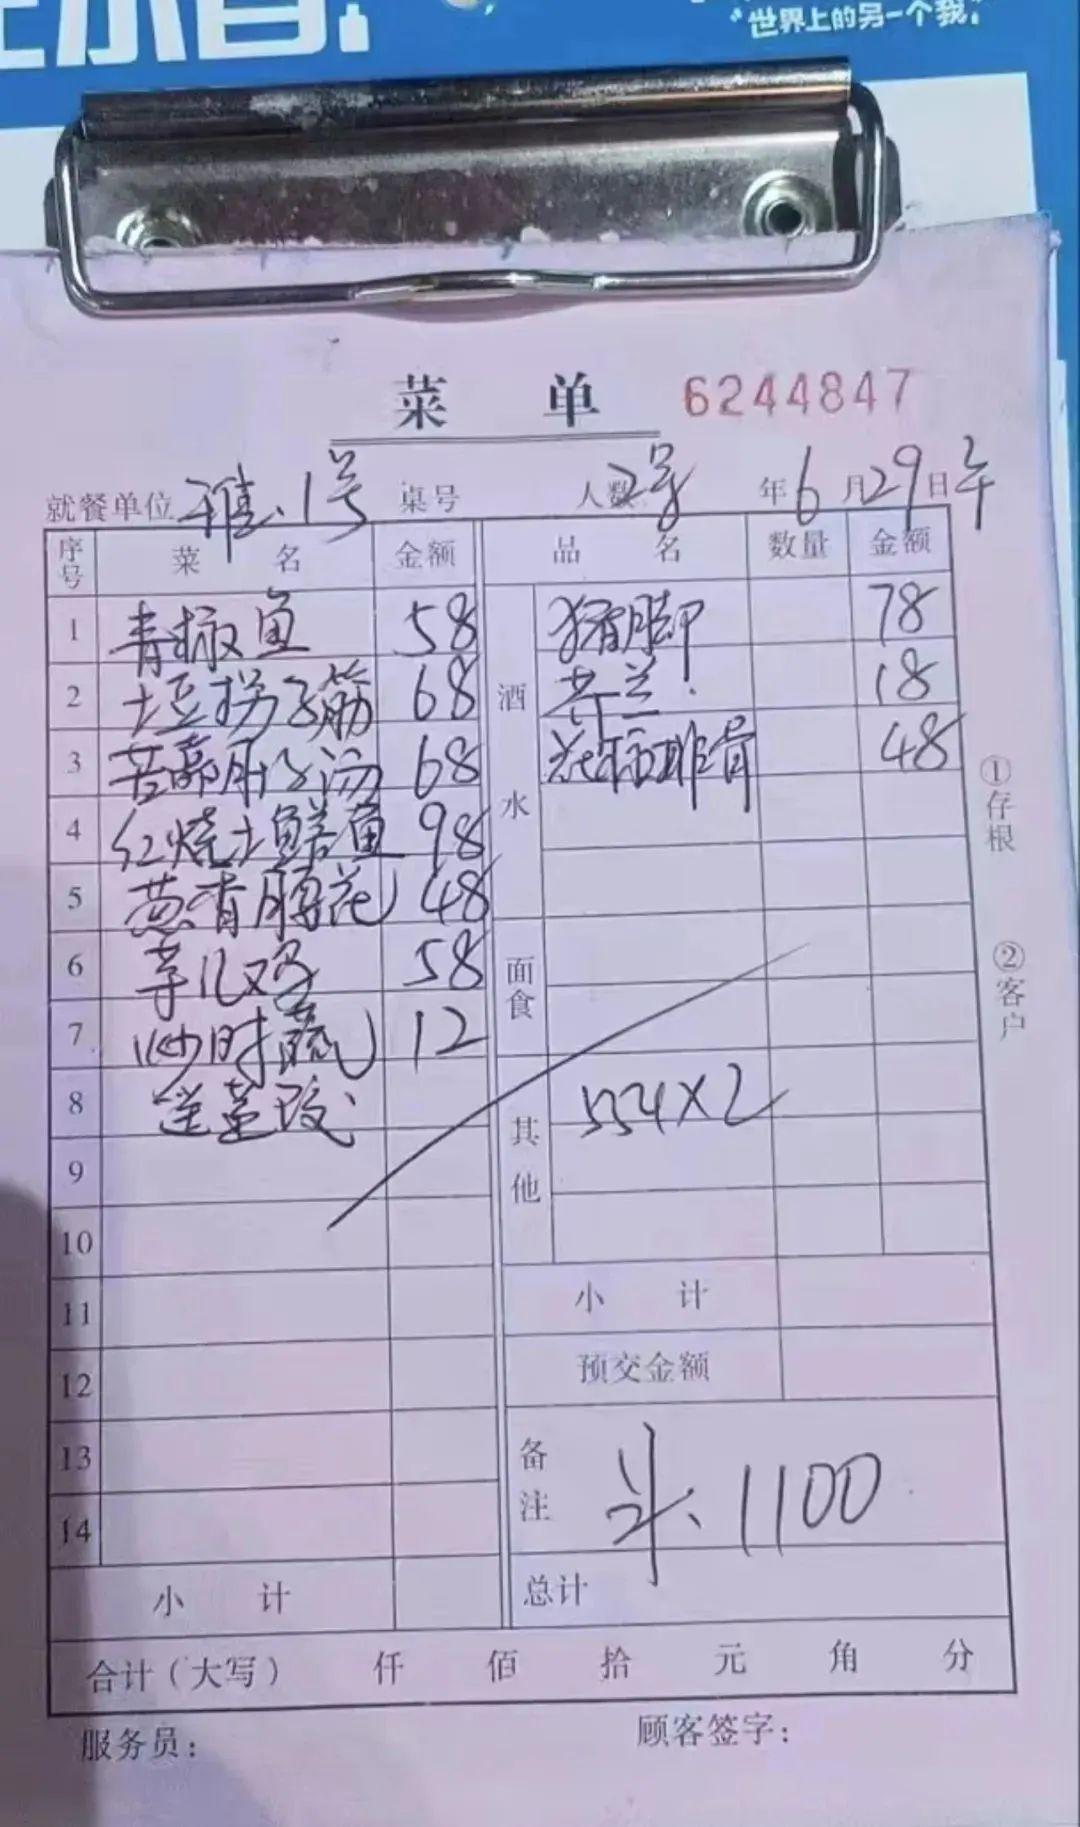 "世界上的另一个我"
菜 单 6244847
就餐单位 雅、1号 桌号 人数 2号 年 6 月 29 日 午
序号 菜 名 金额 品 名 数量 金额
1 青椒鱼 58 酒水 猪脚 78
2 土豆拐子筋 68 芥兰 18
3 肚子汤 68 排骨 48
4 红烧土鳝鱼 98
5 葱香腰花 48
6 芋儿鸡 58 面食
7 炒时蔬 12
8 其他 554×2
9
10
11 小 计
12 预交金额
13 备注 1100
14
小 计 总计
合计(大写) 仟 佰 拾 元 角 分
服务员: 顾客签字:
①存根
②客户